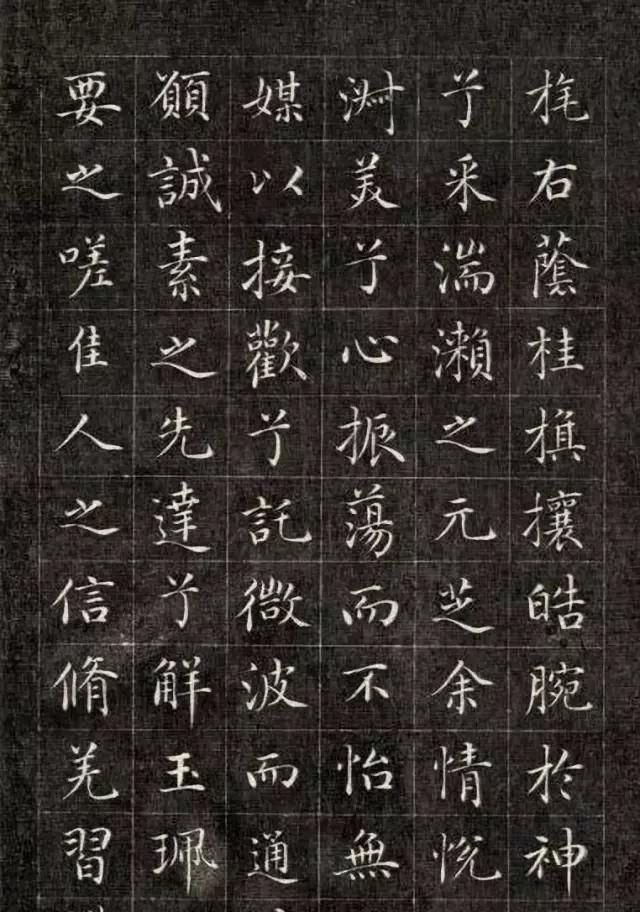 旄右蔭桂旗攘皓腕於神
兮采湍瀨之元芝余情悅
淑美兮心振蕩而不怡無
媒以接歡兮託微波而通
願誠素之先達兮解玉珮
要之嗟佳人之信脩羌習